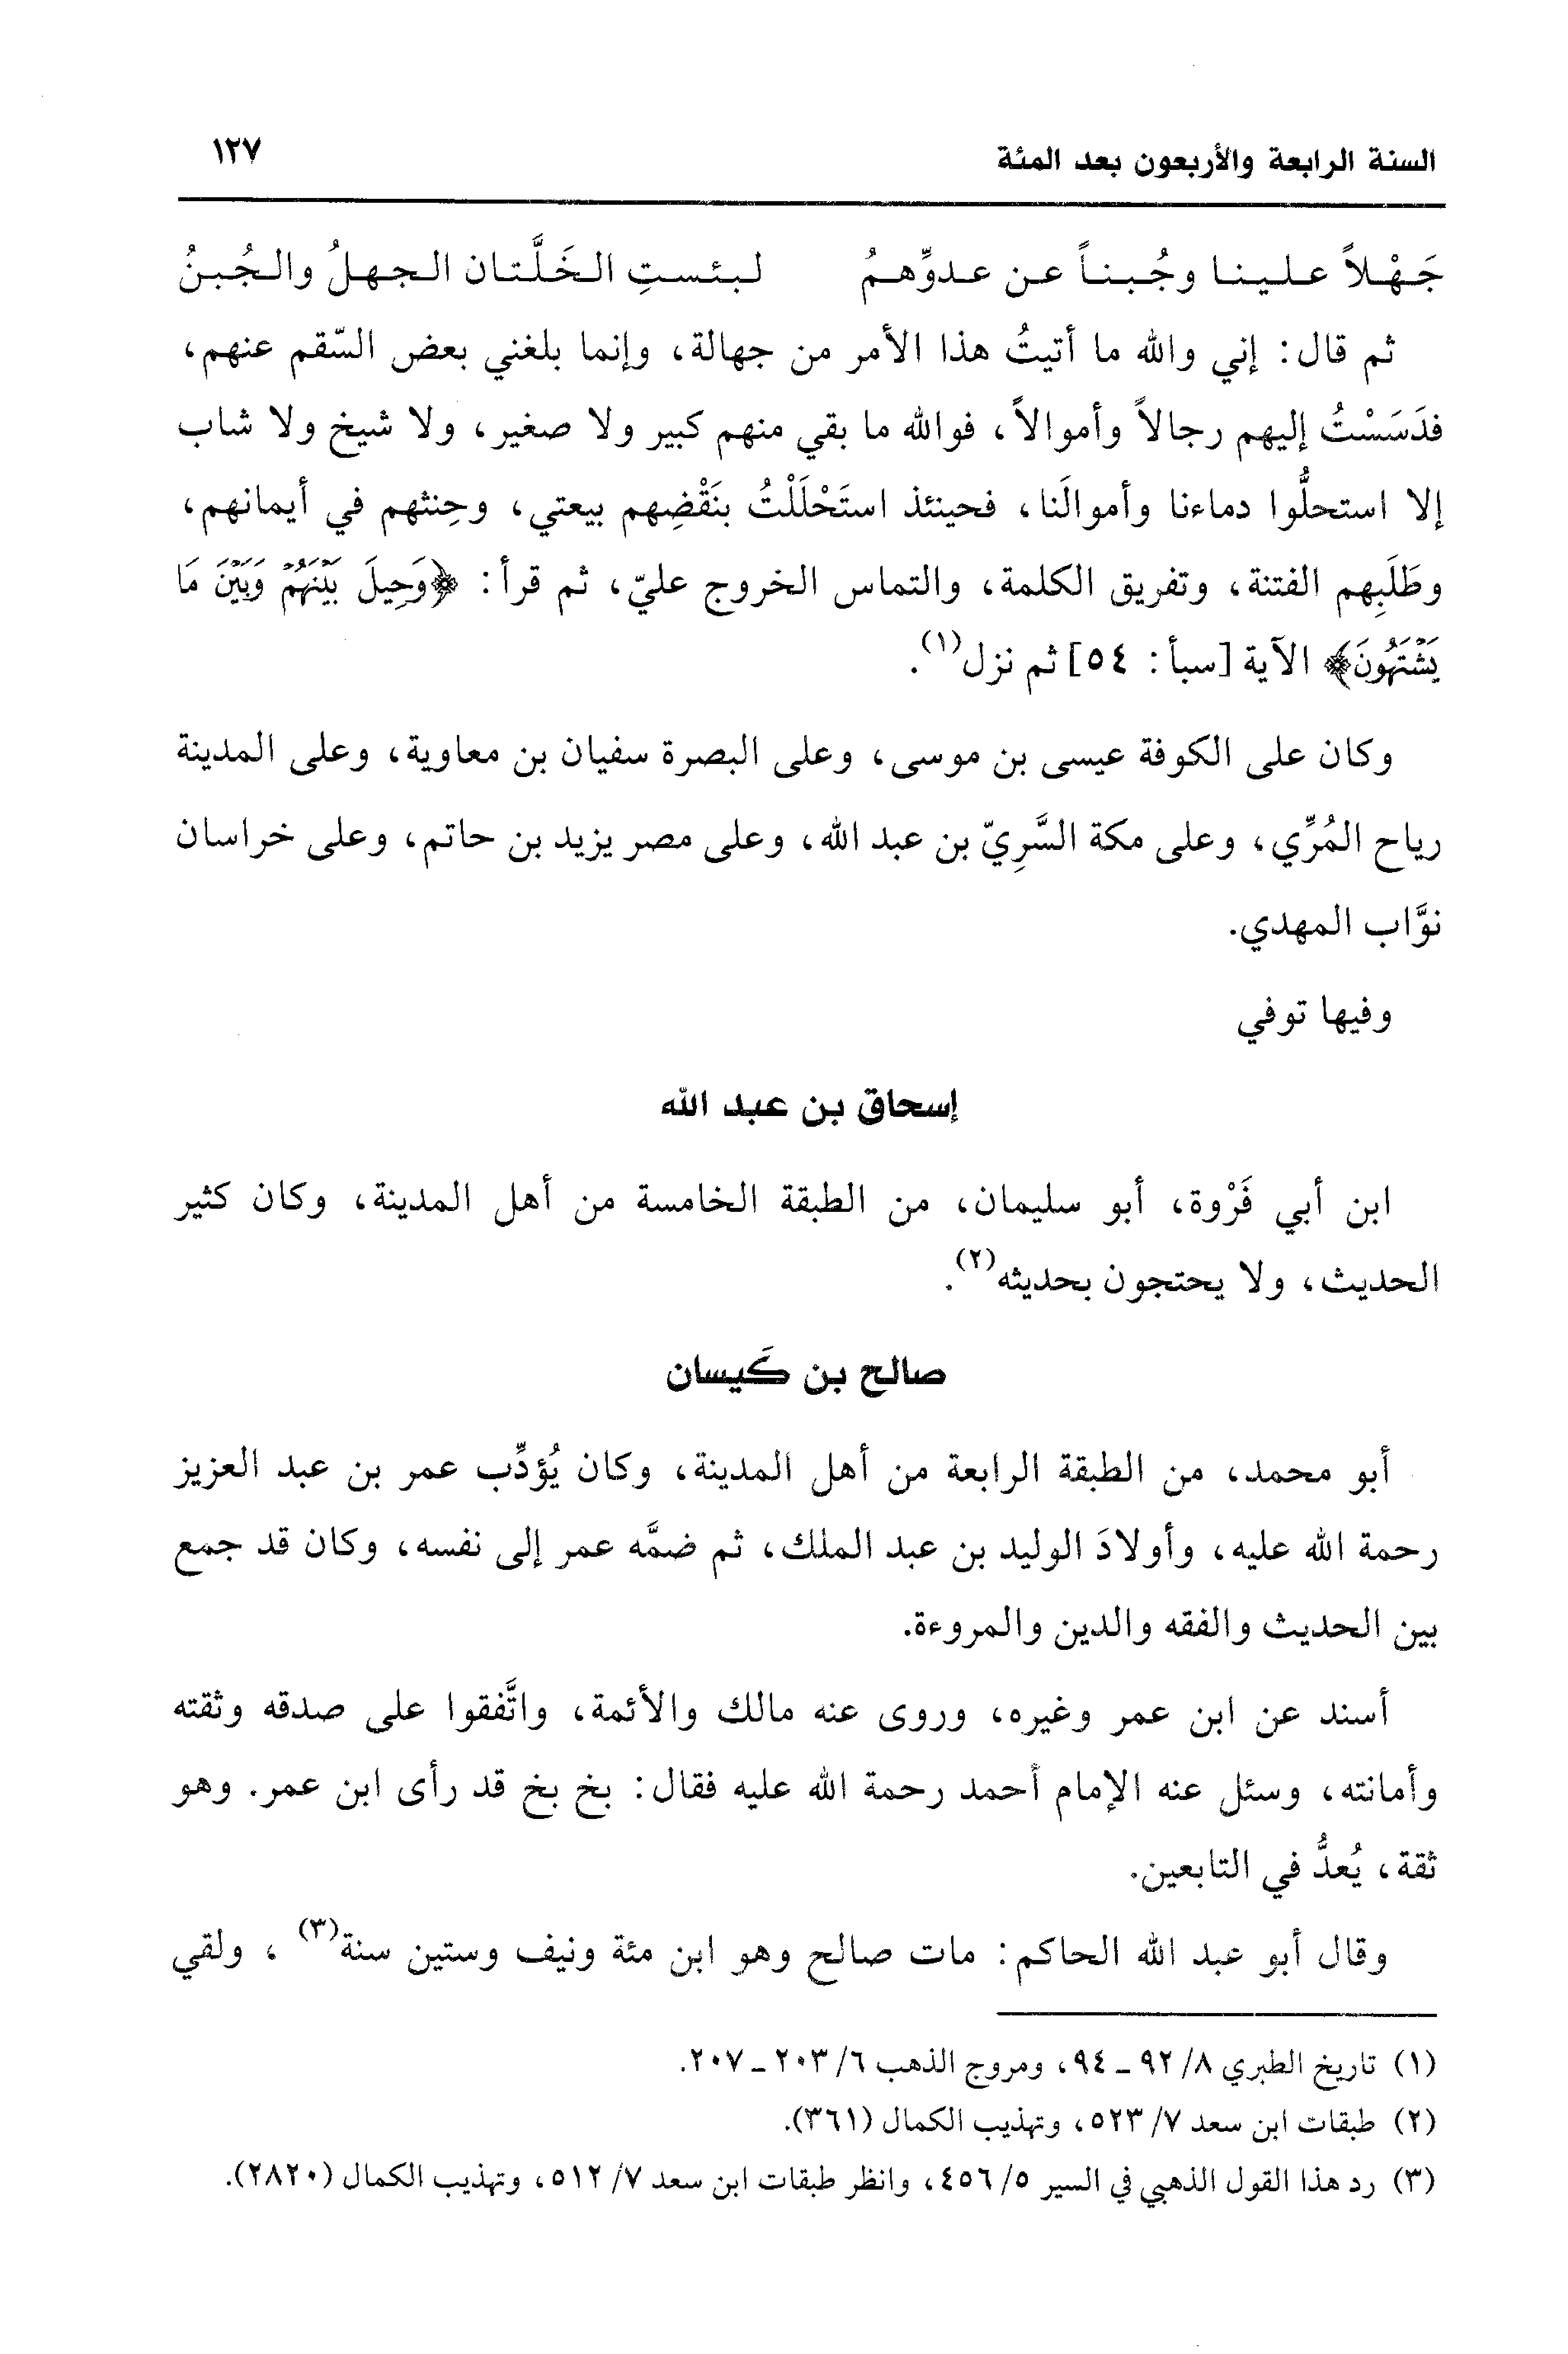 السنة الرابعة والأربعون بعد المئة ١٢٧
جَهْلاً علينا وجُبناً عن عدوِّهمُ لبئستِ الخَلَّتان الجهلُ والجُبنُ
ثم قال: إني والله ما أتيتُ هذا الأمر من جهالة، وإنما بلغني بعض السّقم عنهم،
فدَسَسْتُ إليهم رجالاً وأموالاً، فوالله ما بقي منهم كبير ولا صغير، ولا شيخ ولا شاب
إلا استحلُّوا دماءنا وأموالَنا، فحينئذ استَحْلَلْتُ بنَقْضِهم بيعتي، وحِنثهم في أيمانهم،
وطَلَبِهم الفتنة، وتفريق الكلمة، والتماس الخروج عليّ، ثم قرأ: ﴿وَحِيلَ بَيْنَهُمْ وَبَيْنَ مَا
يَشْتَهُونَ﴾ الآية [سبأ: ٥٤] ثم نزل(١).
وكان على الكوفة عيسى بن موسى، وعلى البصرة سفيان بن معاوية، وعلى المدينة
رياح المُرِّي، وعلى مكة السَّرِيّ بن عبد الله، وعلى مصر يزيد بن حاتم، وعلى خراسان
نوَّاب المهدي.
وفيها توفي
إسحاق بن عبد الله
ابن أبي فَرْوة، أبو سليمان، من الطبقة الخامسة من أهل المدينة، وكان كثير
الحديث، ولا يحتجون بحديثه(٢).
صالح بن كَيسان
أبو محمد، من الطبقة الرابعة من أهل المدينة، وكان يُؤدِّب عمر بن عبد العزيز
رحمة الله عليه، وأولادَ الوليد بن عبد الملك، ثم ضمَّه عمر إلى نفسه، وكان قد جمع
بين الحديث والفقه والدين والمروءة.
أسند عن ابن عمر وغيره، وروى عنه مالك والأئمة، واتَّفقوا على صدقه وثقته
وأمانته، وسئل عنه الإمام أحمد رحمة الله عليه فقال: بخ بخ قد رأى ابن عمر. وهو
ثقة، يُعدُّ في التابعين.
وقال أبو عبد الله الحاكم: مات صالح وهو ابن مئة ونيف وستين سنة(٣)، ولقي
(١) تاريخ الطبري ٨/ ٩٢ ـ ٩٤، ومروج الذهب ٦/ ٢٠٣ ـ ٢٠٧.
(٢) طبقات ابن سعد ٧/ ٥٢٣، وتهذيب الكمال (٣٦١).
(٣) رد هذا القول الذهبي في السير ٥/ ٤٥٦، وانظر طبقات ابن سعد ٧/ ٥١٢، وتهذيب الكمال (٢٨٢٠).